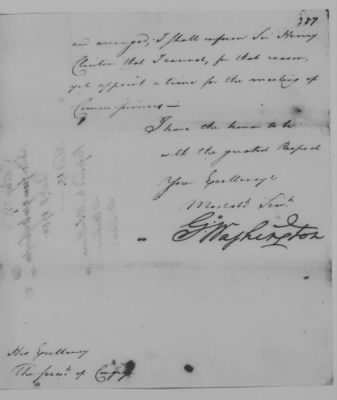 387
are arranged, I shall inform Sir Henry
Clinton that I cannot, for that reason,
yet appoint a time for the meeting of
Commissioners—
I have the honor to be
with the greatest Respect
Your Excellency's
Most obt Servt
Go Washington
His Excellency
The presidt of Congress